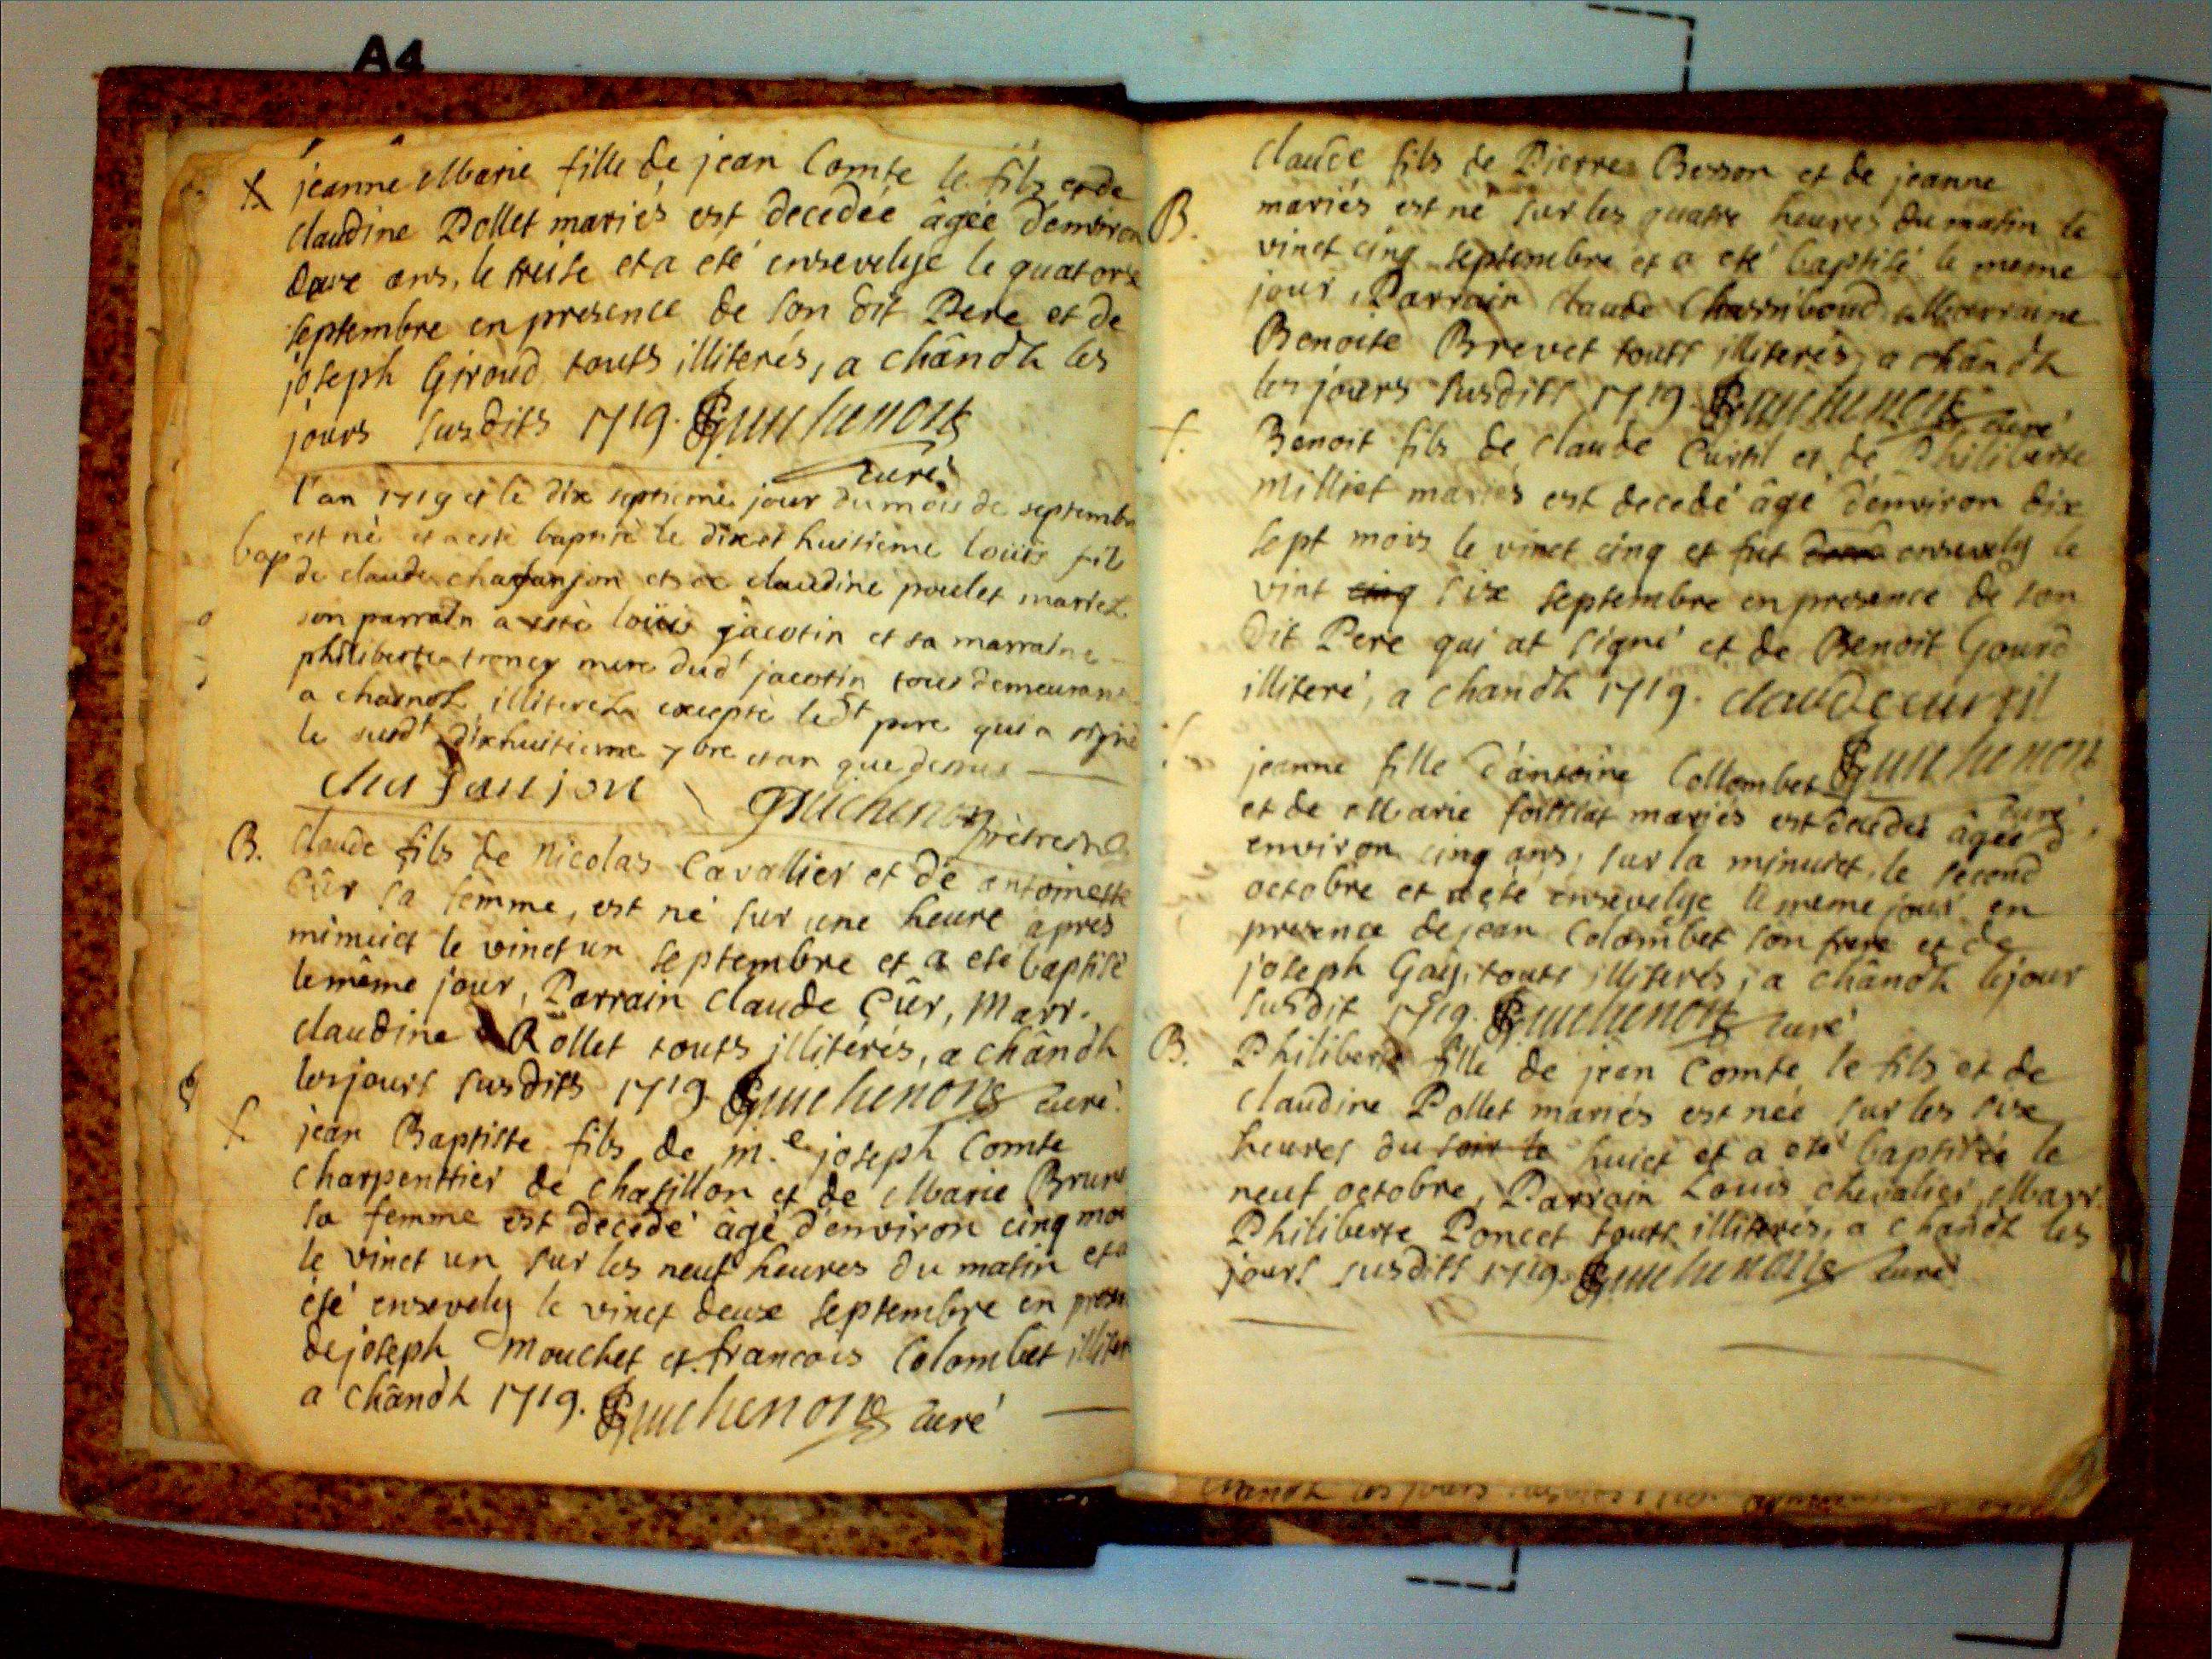 A4
jeanne Marie fille de jean Comte le fils et de
claudine Pollet mariés est decedée âgée d'environ
deux ans, le treise et a eté ensevelye le quatorse
septembre en presence de son dit Pere et de
joseph Giroud touts illiterés, a chândh les
jours susdits 1719. Guichenon
curé
l'an 1719 et le dix septieme jour du mois de septembre
est né et a esté baptisé le dix et huitieme loüis fils
bap de claude chafanjon et de claudine poulet mariez
son parrain a esté loüis jacotin et sa marraine
philiberte troncy mere dudt jacotin tous demeurans
a chandh illiterez excepté ledt pere qui a signé
le susdt dixhuitieme 7bre et an que dessus
chafanjon Guichenon prêtre
B. claude fils de Nicolas Cavallier et de antoinette
Cûr sa femme, est né sur une heure apres
minuict le vinct un septembre et a eté baptisé
le même jour, Parrain Claude Cûr, Marr.
claudine Rollet touts illitérés, a chândh
les jours susdits 1719. Guichenon curé.
jean Baptiste fils de m.e joseph Comte
charpenttier de chatillon et de Marie Brun
sa femme est decedé âgé d'environ cinq moi
le vinct un sur les neuf heures du matin et a
été ensevely le vinct deux septembre en presen
de joseph Mouchet et francois Colombet illiter
a chândh 1719. Guichenon curé
claude fils de Pierre Besson et de jeanne
B. mariés est né sur les quatre heures du matin le
vinct cinq septembre et a eté baptisé le meme
jour, Parrain claude Charriboud Marraine
Benoite Brevet touts illiterés, a chândh
les jours susdits 1719. Guichenon curé
Benoit fils de claude Curtil et de Philiberte
Milliet mariés est decedé âgé d'environ dix
sept mois le vinct cinq et fut ensevely le
vint cinq six septembre en presence de son
dit Pere qui at signé et de Benoit Gourd
illiteré, a chandh 1719. claude curtil
Guichenon
jeanne fille d'antoine Collombet
curé
et de Marie mariés est decedée âgée d'
environ cinq ans, sur la minuict, le second
octobre et a eté ensevelye le meme jour en
presence de jean Colombet son frere et de
joseph Gay, touts illiterés, a chândh le jour
susdit 1719. Guichenon curé
B. Philiberte fille de jean Comte le fils et de
claudine Pollet mariés est née sur les six
heures du soir le huict et a eté baptisée le
neuf octobre, Parrain Louis chevalier, Marr.
Philiberte Poncet touts illiterés, a chandh les
jours susdits 1719. Guichenon curé